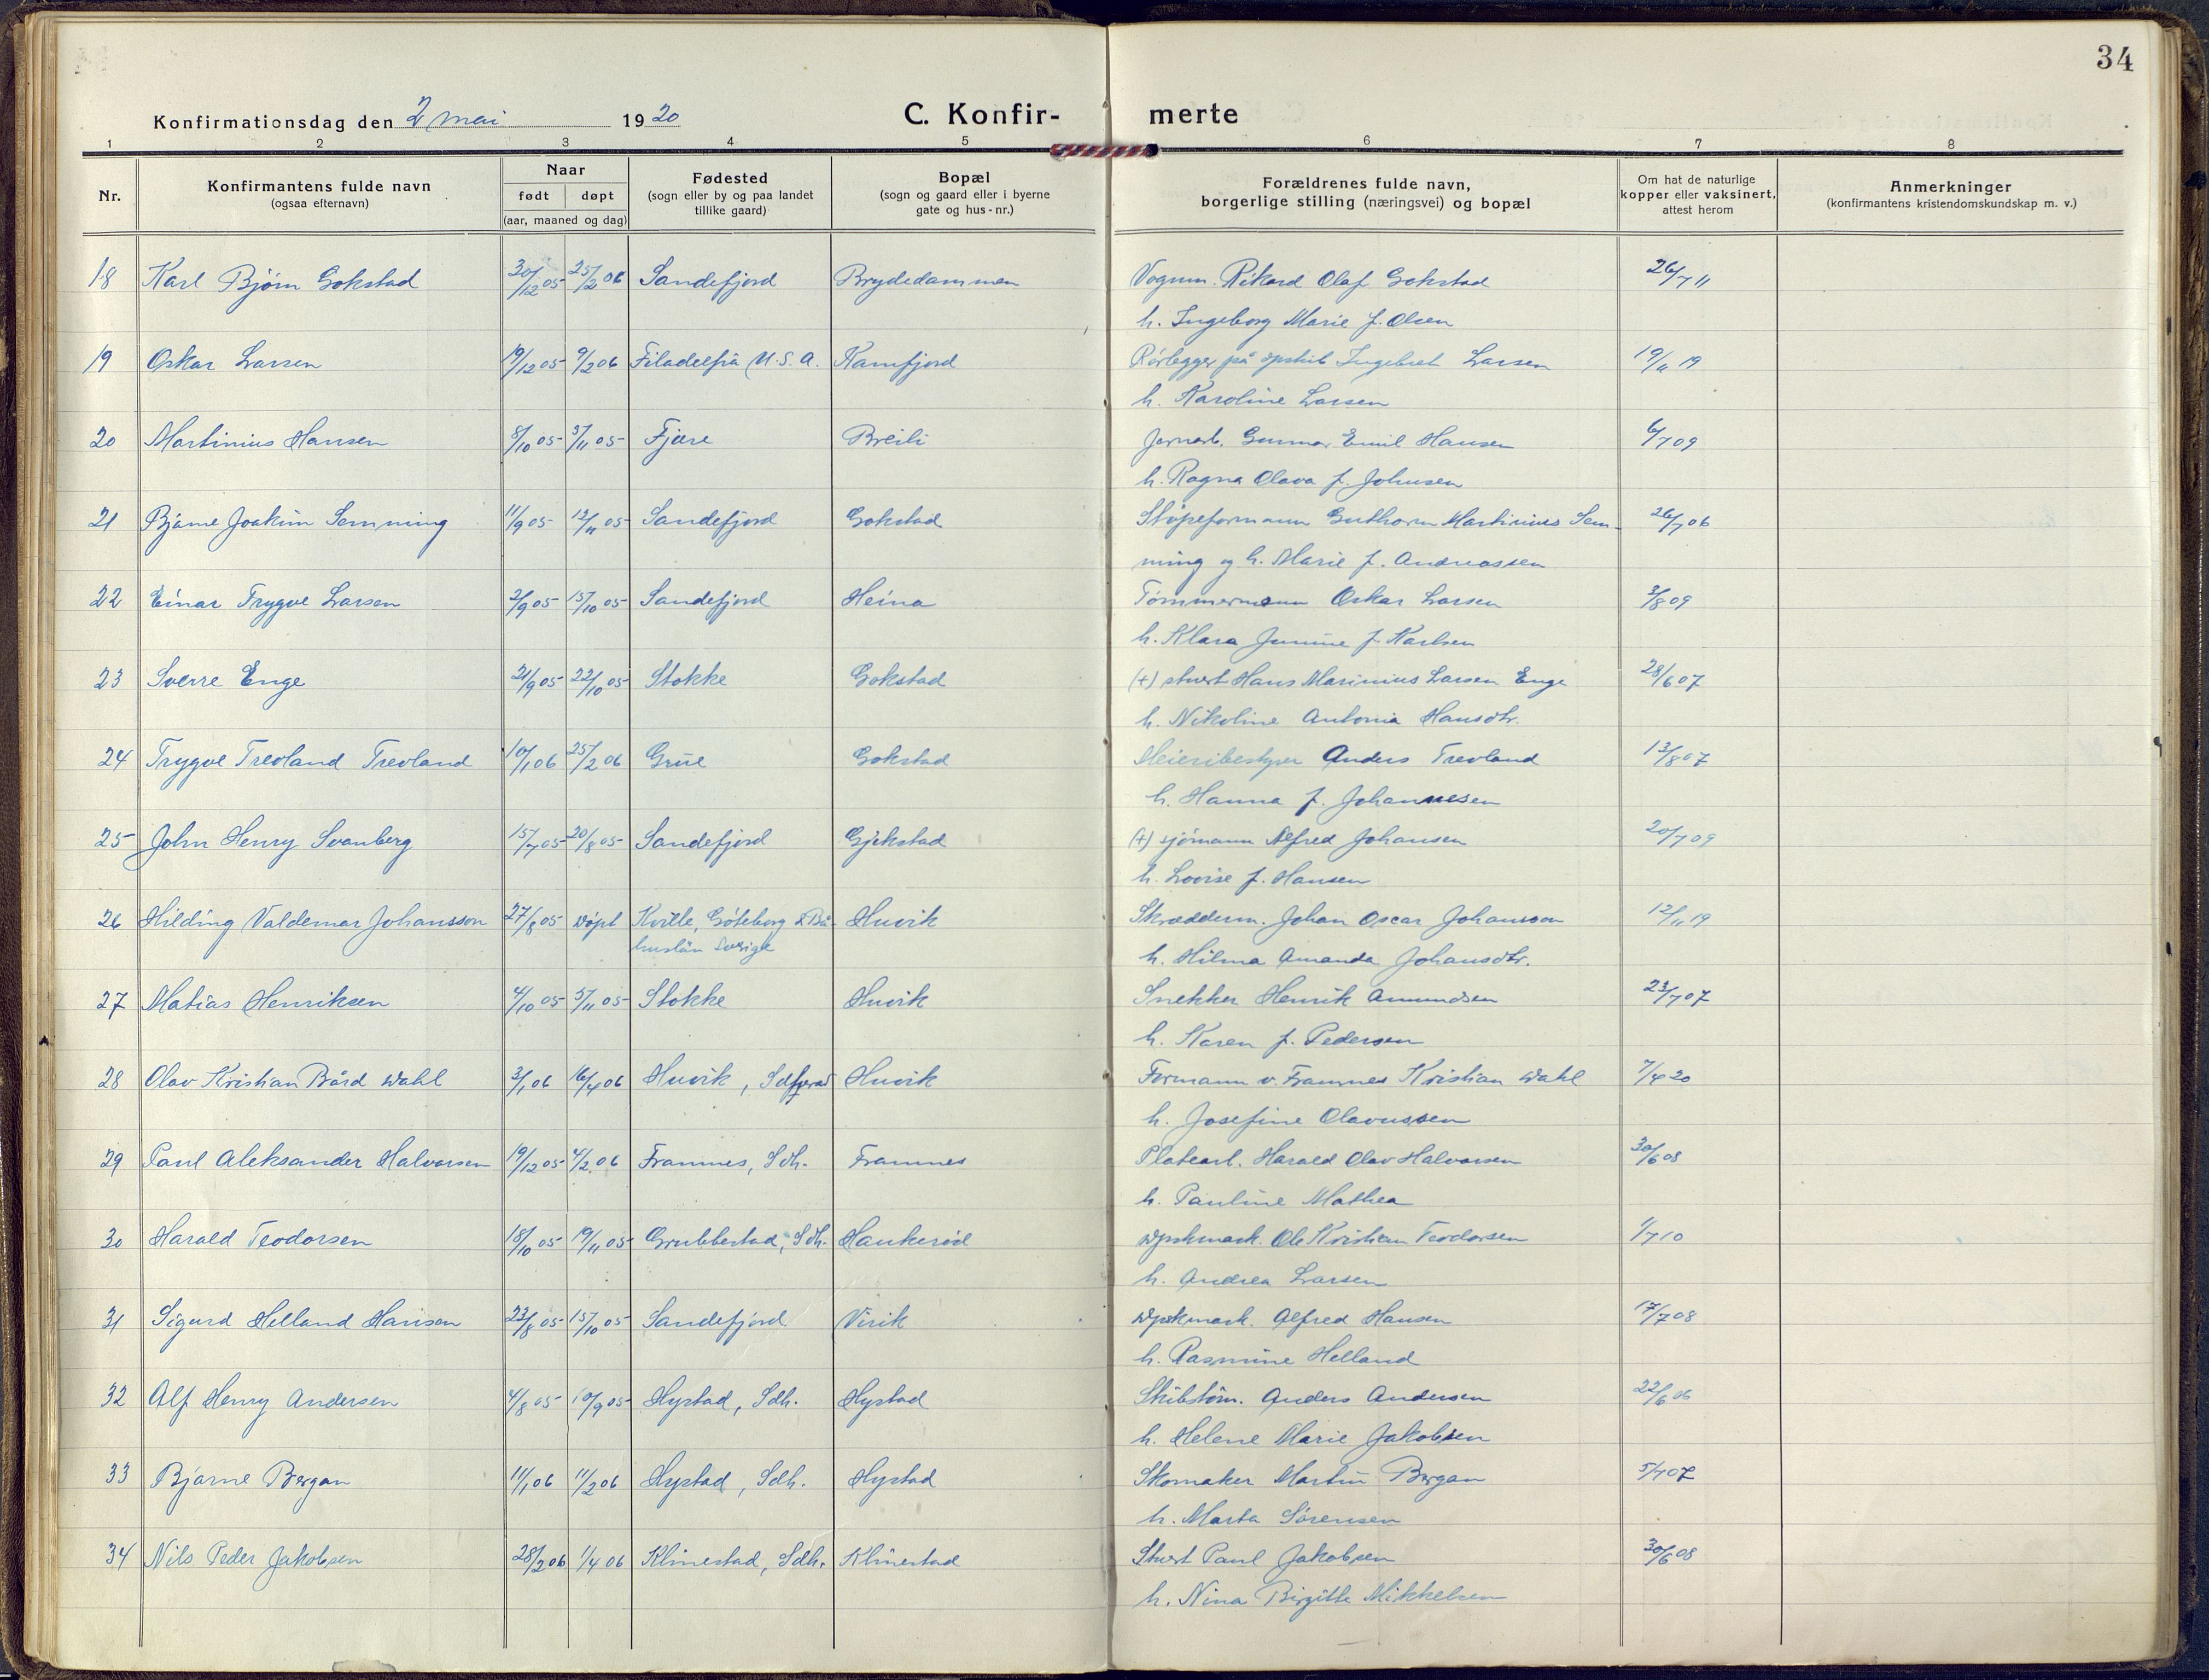 34
Konfirmationsdag den 2 mai 1920
C. Konfir- merte
1 2 3 4 5 6 7 8
Nr.
Konfirmantens fulde navn
(ogsaa efternavn)
Naar
født døpt
(aar, maaned og dag)
Fødested
(sogn eller by og paa landet
tillike gaard)
Bopæl
(sogn og gaard eller i byerne
gate og hus-nr.)
Forældrenes fulde navn,
borgerlige stilling (næringsvei) og bopæl
Om hat de naturlige
kopper eller vaksinert,
attest herom
Anmerkninger
(konfirmantens kristendomskundskap m. v.)
18 Karl Bjørn Gokstad 30/12 05 25/2 06 Sandefjord Brydedammen Vognm. Rikard Olaf Gokstad 26/7 11
h. Ingeborg Marie f. Olsen
19 Oskar Larsen 19/12 05 9/2 06 Filadelfia (U.S.A. Kamfjord Rørlegger på Ingebret Larsen 19/11 19
h. Karoline Larsen
20 Martinius Hansen 8/10 05 5/11 05 Fjære Breili Jernarb. Gunnar Emil Hansen 6/7 09
h. Ragna Olava f. Johnsen
21 Bjarne Joakim Semming 11/9 05 12/11 05 Sandefjord Gokstad Støpeformann Guthorm Martinius Sem- 26/7 06
ming og h. Marie f. Andreassen
22 Einar Trygve Larsen 2/9 05 15/10 05 Sandefjord Heina Tømmermann Oskar Larsen 3/8 09
h. Klara Jumine f. Karlsen
23 Sverre Enge 21/9 05 22/10 05 Stokke Gokstad (+) stuert Hans Marinius Larsen Enge 28/6 07
h. Nikoline Antonia Hansdtr.
24 Trygve Trevland Trevland 10/1 06 25/2 06 Grue Gokstad Meieribestyrer Anders Trevland 13/8 07
h. Hanna f. Johannesen
25 John Henry Svanberg 15/7 05 20/8 05 Sandefjord Gjekstad (+) sjømann Alfred Johansen 20/7 09
h. Lovise f. Hansen
26 Hilding Valdemar Johansson 27/8 05 døpt Kville, Göteborg & Bå- Huvik Skræderm. Johan Oscar Johansson 12/11 19
huslän Sverige
h. Hilma Amanda Johansdtr.
27 Matias Henriksen 4/10 05 5/11 05 Stokke Huvik Snekker Henrik Amundsen 23/7 07
h. Karen f. Pedersen
28 Olav Kristian Bård Dahl 3/1 06 16/4 06 Huvik, Sdfjord Huvik Formann v. Framnes Kristian Dahl 7/4 20
h. Josefine Olavussen
29 Paul Aleksander Halvorsen 19/12 05 4/2 06 Framnes, Sdh. Framnes Platearb. Harald Olav Halvorsen 30/6 08
h. Pauline Mathea
30 Harald Teodorsen 18/10 05 19/11 05 Grubbestad, Sdh. Haukerød Dpskmask. Ole Kristian Teodorsen 1/7 10
h. Andrea Larsen
31 Sigurd Helland Hansen 23/8 05 15/10 05 Sandefjord Virik Dpskmask. Alfred Hansen 17/7 08
h. Rasmine Helland
32 Alf Henry Andersen 4/8 05 10/9 05 Hystad, Sdh. Hystad Skibstøm. Anders Andersen 22/6 06
h. Helene Marie Jakobsen
33 Bjarne Bergan 11/1 06 11/2 06 Hystad, Sdh. Hystad Skomaker Martin Bergan 5/7 07
h. Marta Sørensen
34 Nils Peder Jakobsen 28/2 06 1/4 06 Klinestad, Sdh. Klinestad Stuert Paul Jakobsen 30/6 08
h. Nina Birgitte Mikkelsen